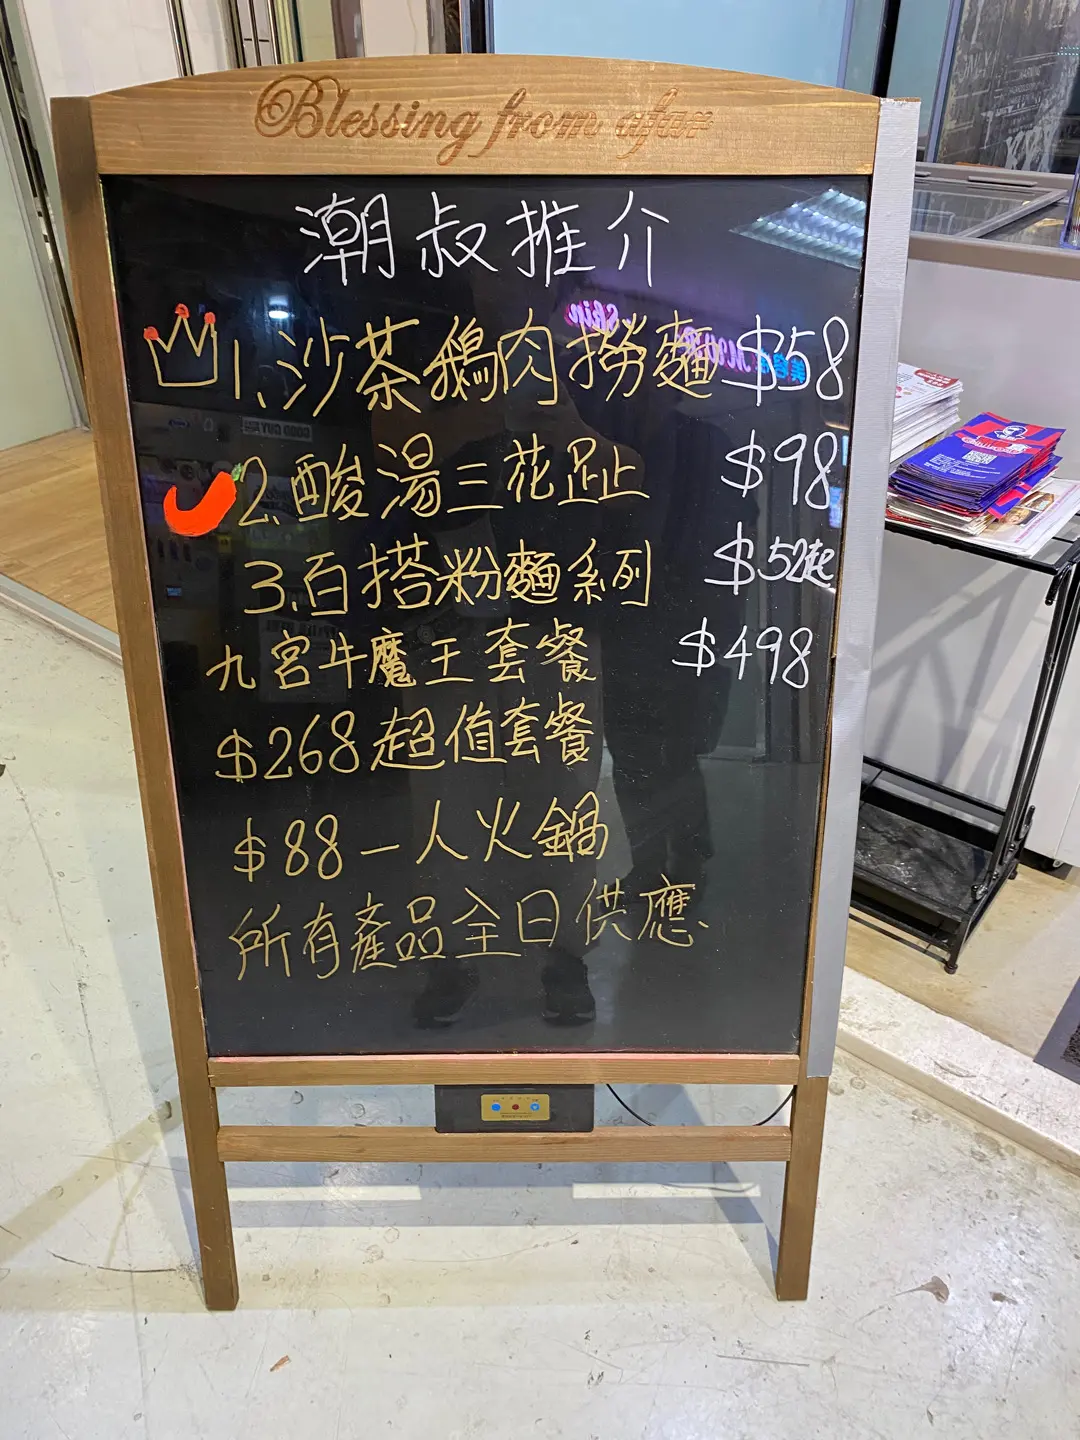 Blessing from afar
潮叔推介
1.沙茶鵝肉撈麵 $58
2.酸湯三花趾 $98
3.百搭粉麵系列 $52起
九宮牛魔王套餐 $498
$268超值套餐
$88一人火鍋
所有產品全日供應